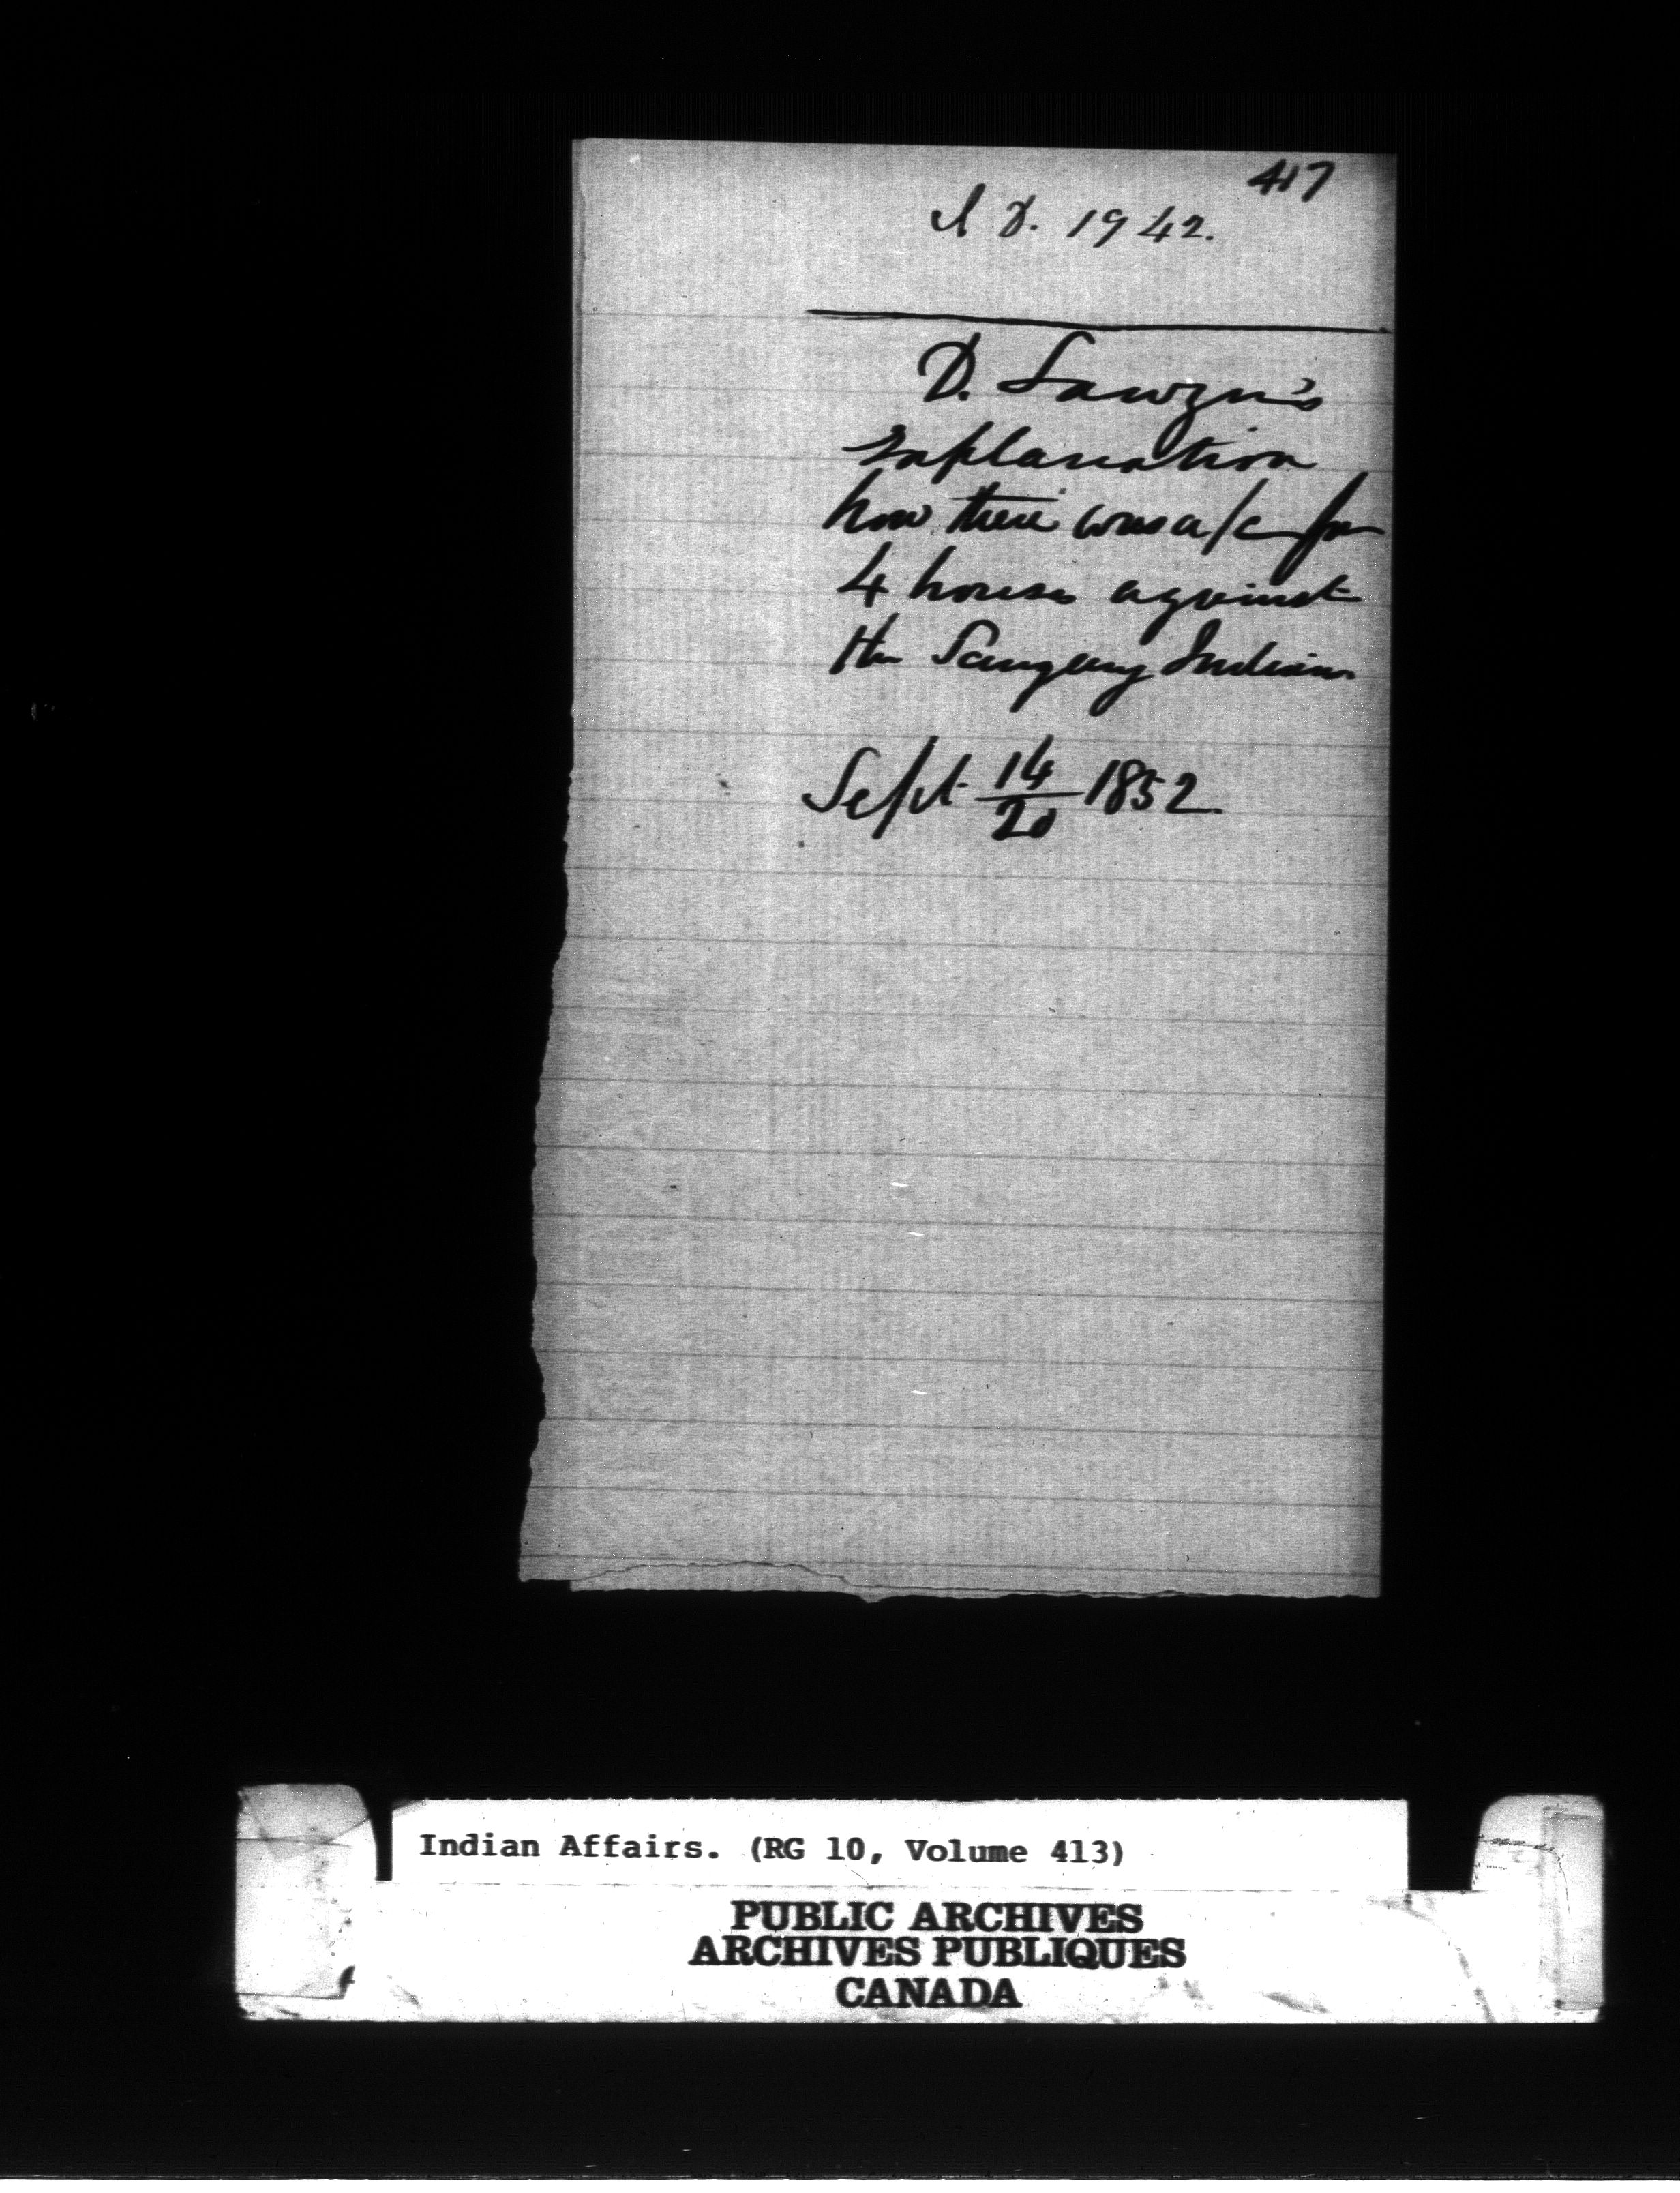 417
I D. 1942.
D. Sawyer's
Explanation
how there was a/c for
4 houses against
the Saugeeng Indians
Sept 14/20 1852.
Indian Affairs. (RG 10, Volume 413)
PUBLIC ARCHIVES
ARCHIVES PUBLIQUES
CANADA